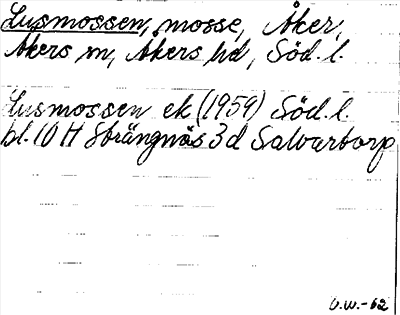 Lusmossen, mosse, Åker,
Åkers sn, Åkers hd, Söd. l.
Lusmossen ek (1959) Söd. l.
bl. 10 H Strängnäs 3 d Salvartorp
O.W.-62